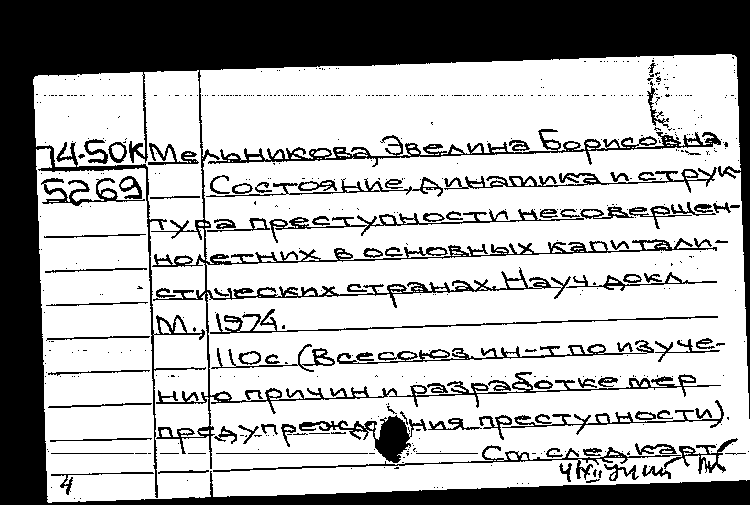 74-50К Мельникова, Эвелина Борисовна.
5269 Состояние, динамика и струк-
тура преступности несовершен-
нолетних в основных капитали-
стических странах. Науч. докл.
М., 1974.
110с. (Всесоюз. ин-т по изуче-
нию причин и разработке мер
предупреждения преступности).
См. след. карт.
4